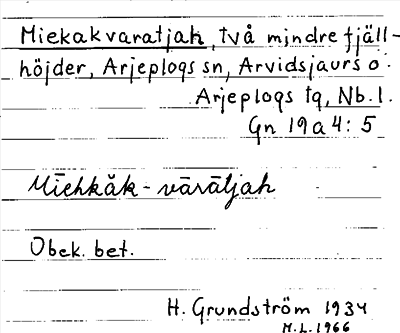 Miekakvaratjah, två mindre fjäll-
höjder, Arjeplogs sn, Arvidsjaurs o.
Arjeplogs tg, Nb. l.
Gn 19a4: 5
Miehkăk-vāràtjah
Obek. bet.
H. Grundström 1934
M.L. 1966